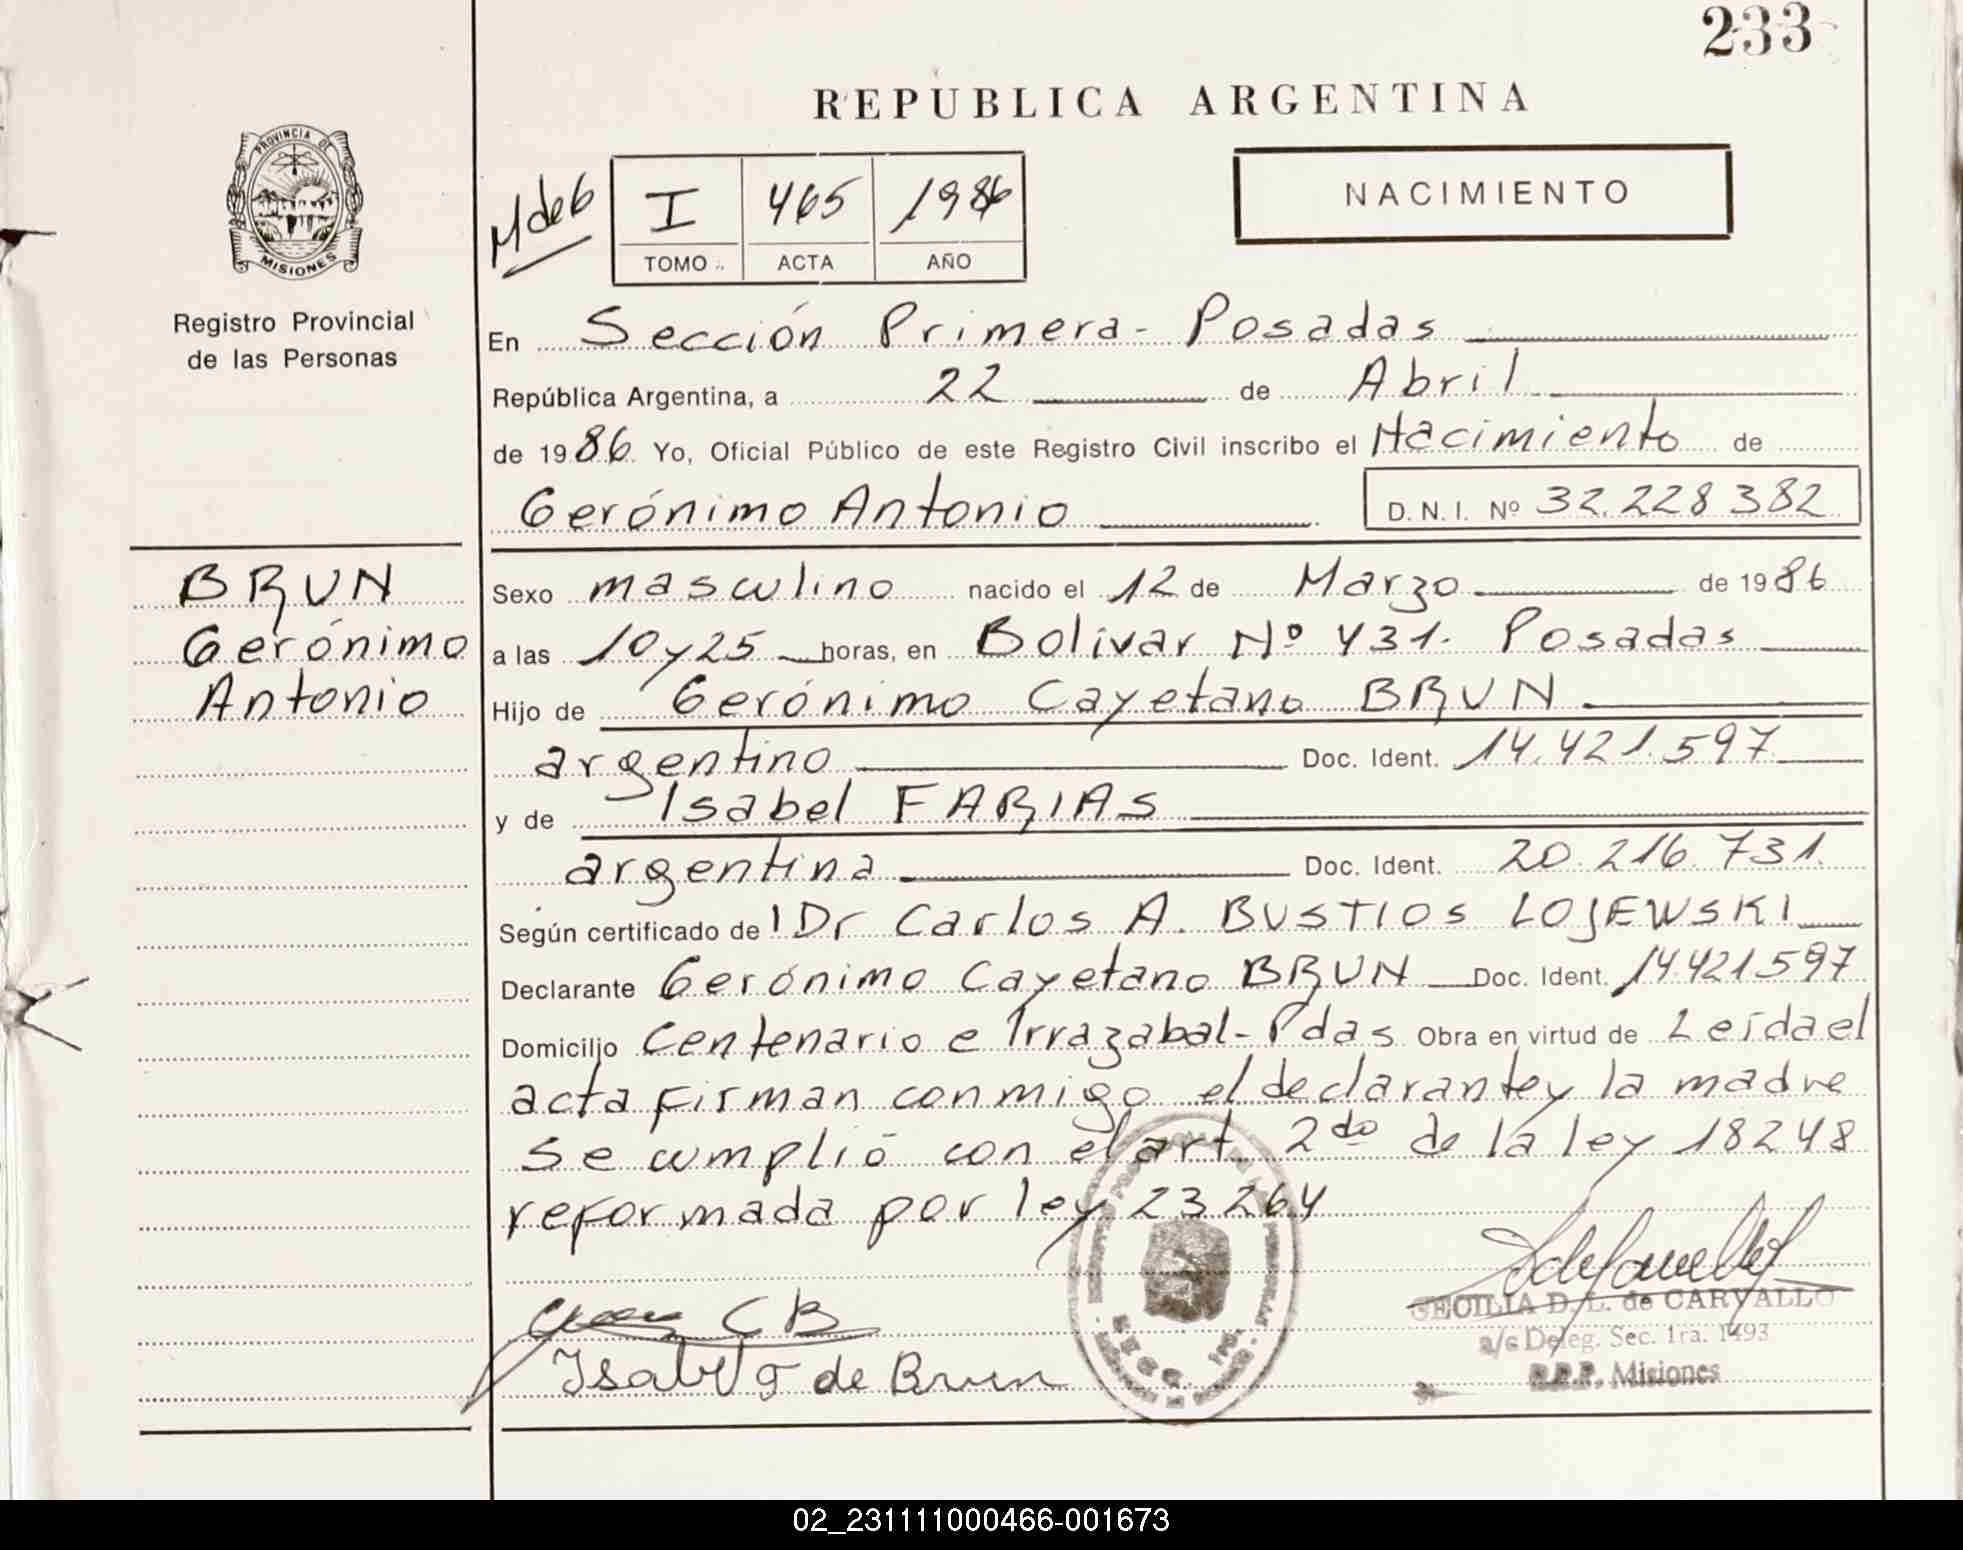 233
REPUBLICA ARGENTINA
PROVINCIA DE
MISIONES
Registro Provincial
de las Personas
M de 6
I 465 1986
TOMO ACTA AÑO
NACIMIENTO
En Sección Primera - Posadas
República Argentina, a 22 de Abril
de 1986 Yo, Oficial Público de este Registro Civil inscribo el Nacimiento de
Gerónimo Antonio D. N. I. Nº 32.228.382
BRUN
Gerónimo
Antonio
Sexo masculino nacido el 12 de Marzo de 1986
a las 10 y 25 horas, en Bolivar Nº 431. Posadas
Hijo de Gerónimo Cayetano BRUN
argentino Doc. Ident. 14.421.597
y de Isabel FARIAS
argentina Doc. Ident. 20.216.731.
Según certificado de l Dr Carlos A. BUSTIOS LOJEWSKI
Declarante Gerónimo Cayetano BRUN Doc. Ident. 14.421597
Domicilio Centenario e Irrazabal - Pdas Obra en virtud de Leída el
acta firman conmigo el declarante y la madre
se cumplió con el art. 2do de la ley 18248
reformada por ley 23264
C B
Isabel F de Brun
CECILIA D. L. de CARVALLO
a/c Deleg. Sec. 1ra. 1493
R.P.P. Misiones
02_231111000466-001673